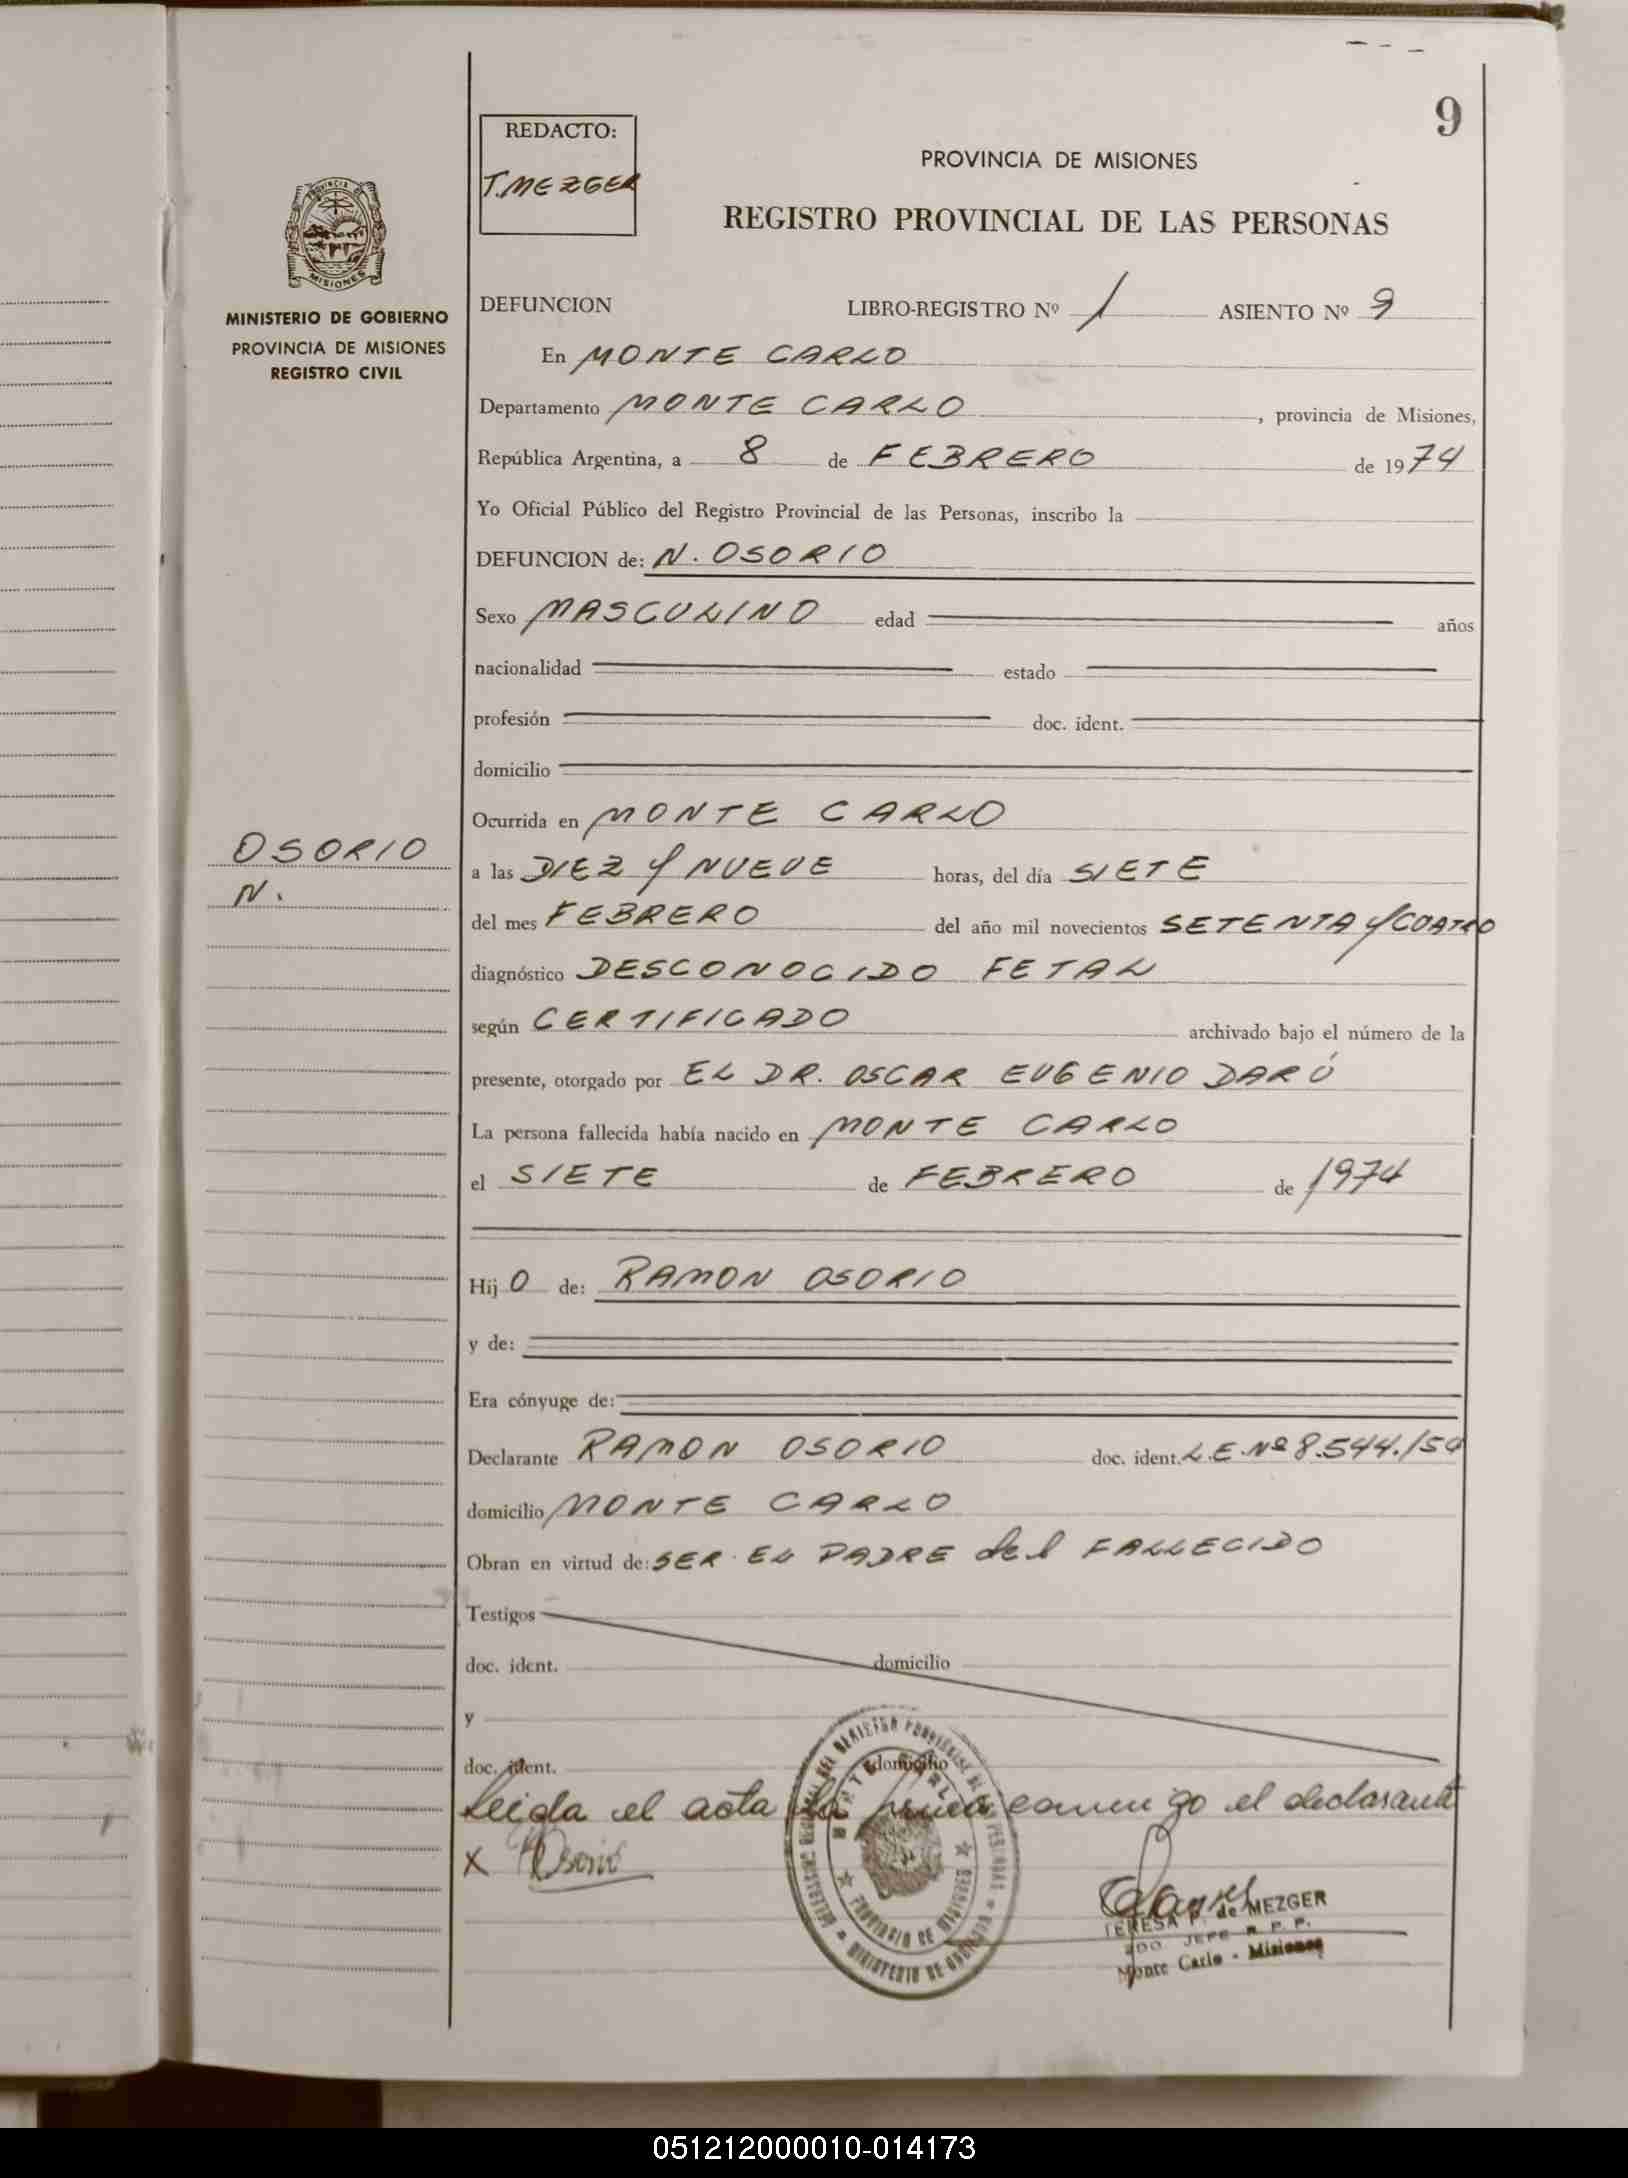 9
REDACTO:
T. MEZGER
PROVINCIA DE MISIONES
REGISTRO PROVINCIAL DE LAS PERSONAS
PROVINCIA DE
MISIONES
MINISTERIO DE GOBIERNO
PROVINCIA DE MISIONES
REGISTRO CIVIL
DEFUNCION LIBRO-REGISTRO Nº 1 ASIENTO Nº 9
En MONTE CARLO
Departamento MONTE CARLO, provincia de Misiones,
República Argentina, a 8 de FEBRERO de 1974
Yo Oficial Público del Registro Provincial de las Personas, inscribo la
DEFUNCION de: N. OSORIO
Sexo MASCULINO edad años
nacionalidad estado
profesión doc. ident.
domicilio
Ocurrida en MONTE CARLO
OSORIO
N.
a las DIEZ Y NUEVE horas, del día SIETE
del mes FEBRERO del año mil novecientos SETENTA Y CUATRO
diagnóstico DESCONOCIDO FETAL
según CERTIFICADO archivado bajo el número de la
presente, otorgado por EL DR. OSCAR EUGENIO DARÚ
La persona fallecida había nacido en MONTE CARLO
el SIETE de FEBRERO de 1974
Hij O de: RAMON OSORIO
y de:
Era cónyuge de:
Declarante RAMON OSORIO doc. ident. L.E. Nº 8.544.150
domicilio MONTE CARLO
Obran en virtud de: SER EL PADRE del FALLECIDO
Testigos
doc. ident. domicilio
y
doc. ident. domicilio
Leida el acta la conmigo el declarante
x Osorio
MONTE CARLO
PROVINCIA DE MISIONES
MINISTERIO DE GOBIERNO
TERESA P. de MEZGER
2DO JEFE R. P. P.
Monte Carlo - Misiones
051212000010-014173